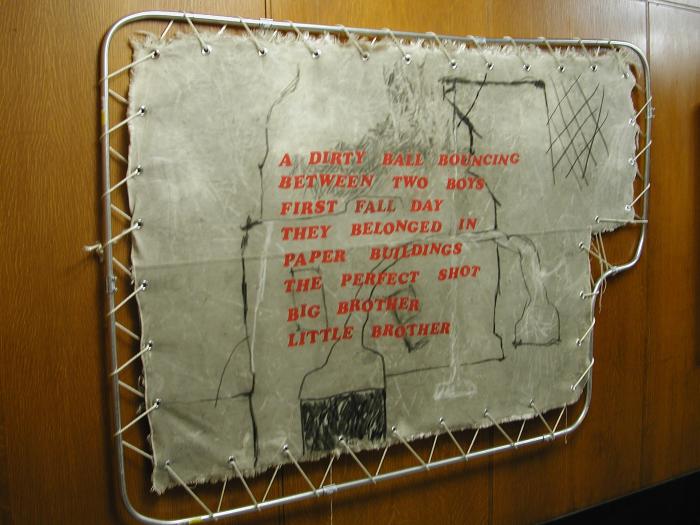 A DIRTY BALL BOUNCING
BETWEEN TWO BOYS
FIRST FALL DAY
THEY BELONGED IN
PAPER BUILDINGS
THE PERFECT SHOT
BIG BROTHER
LITTLE BROTHER